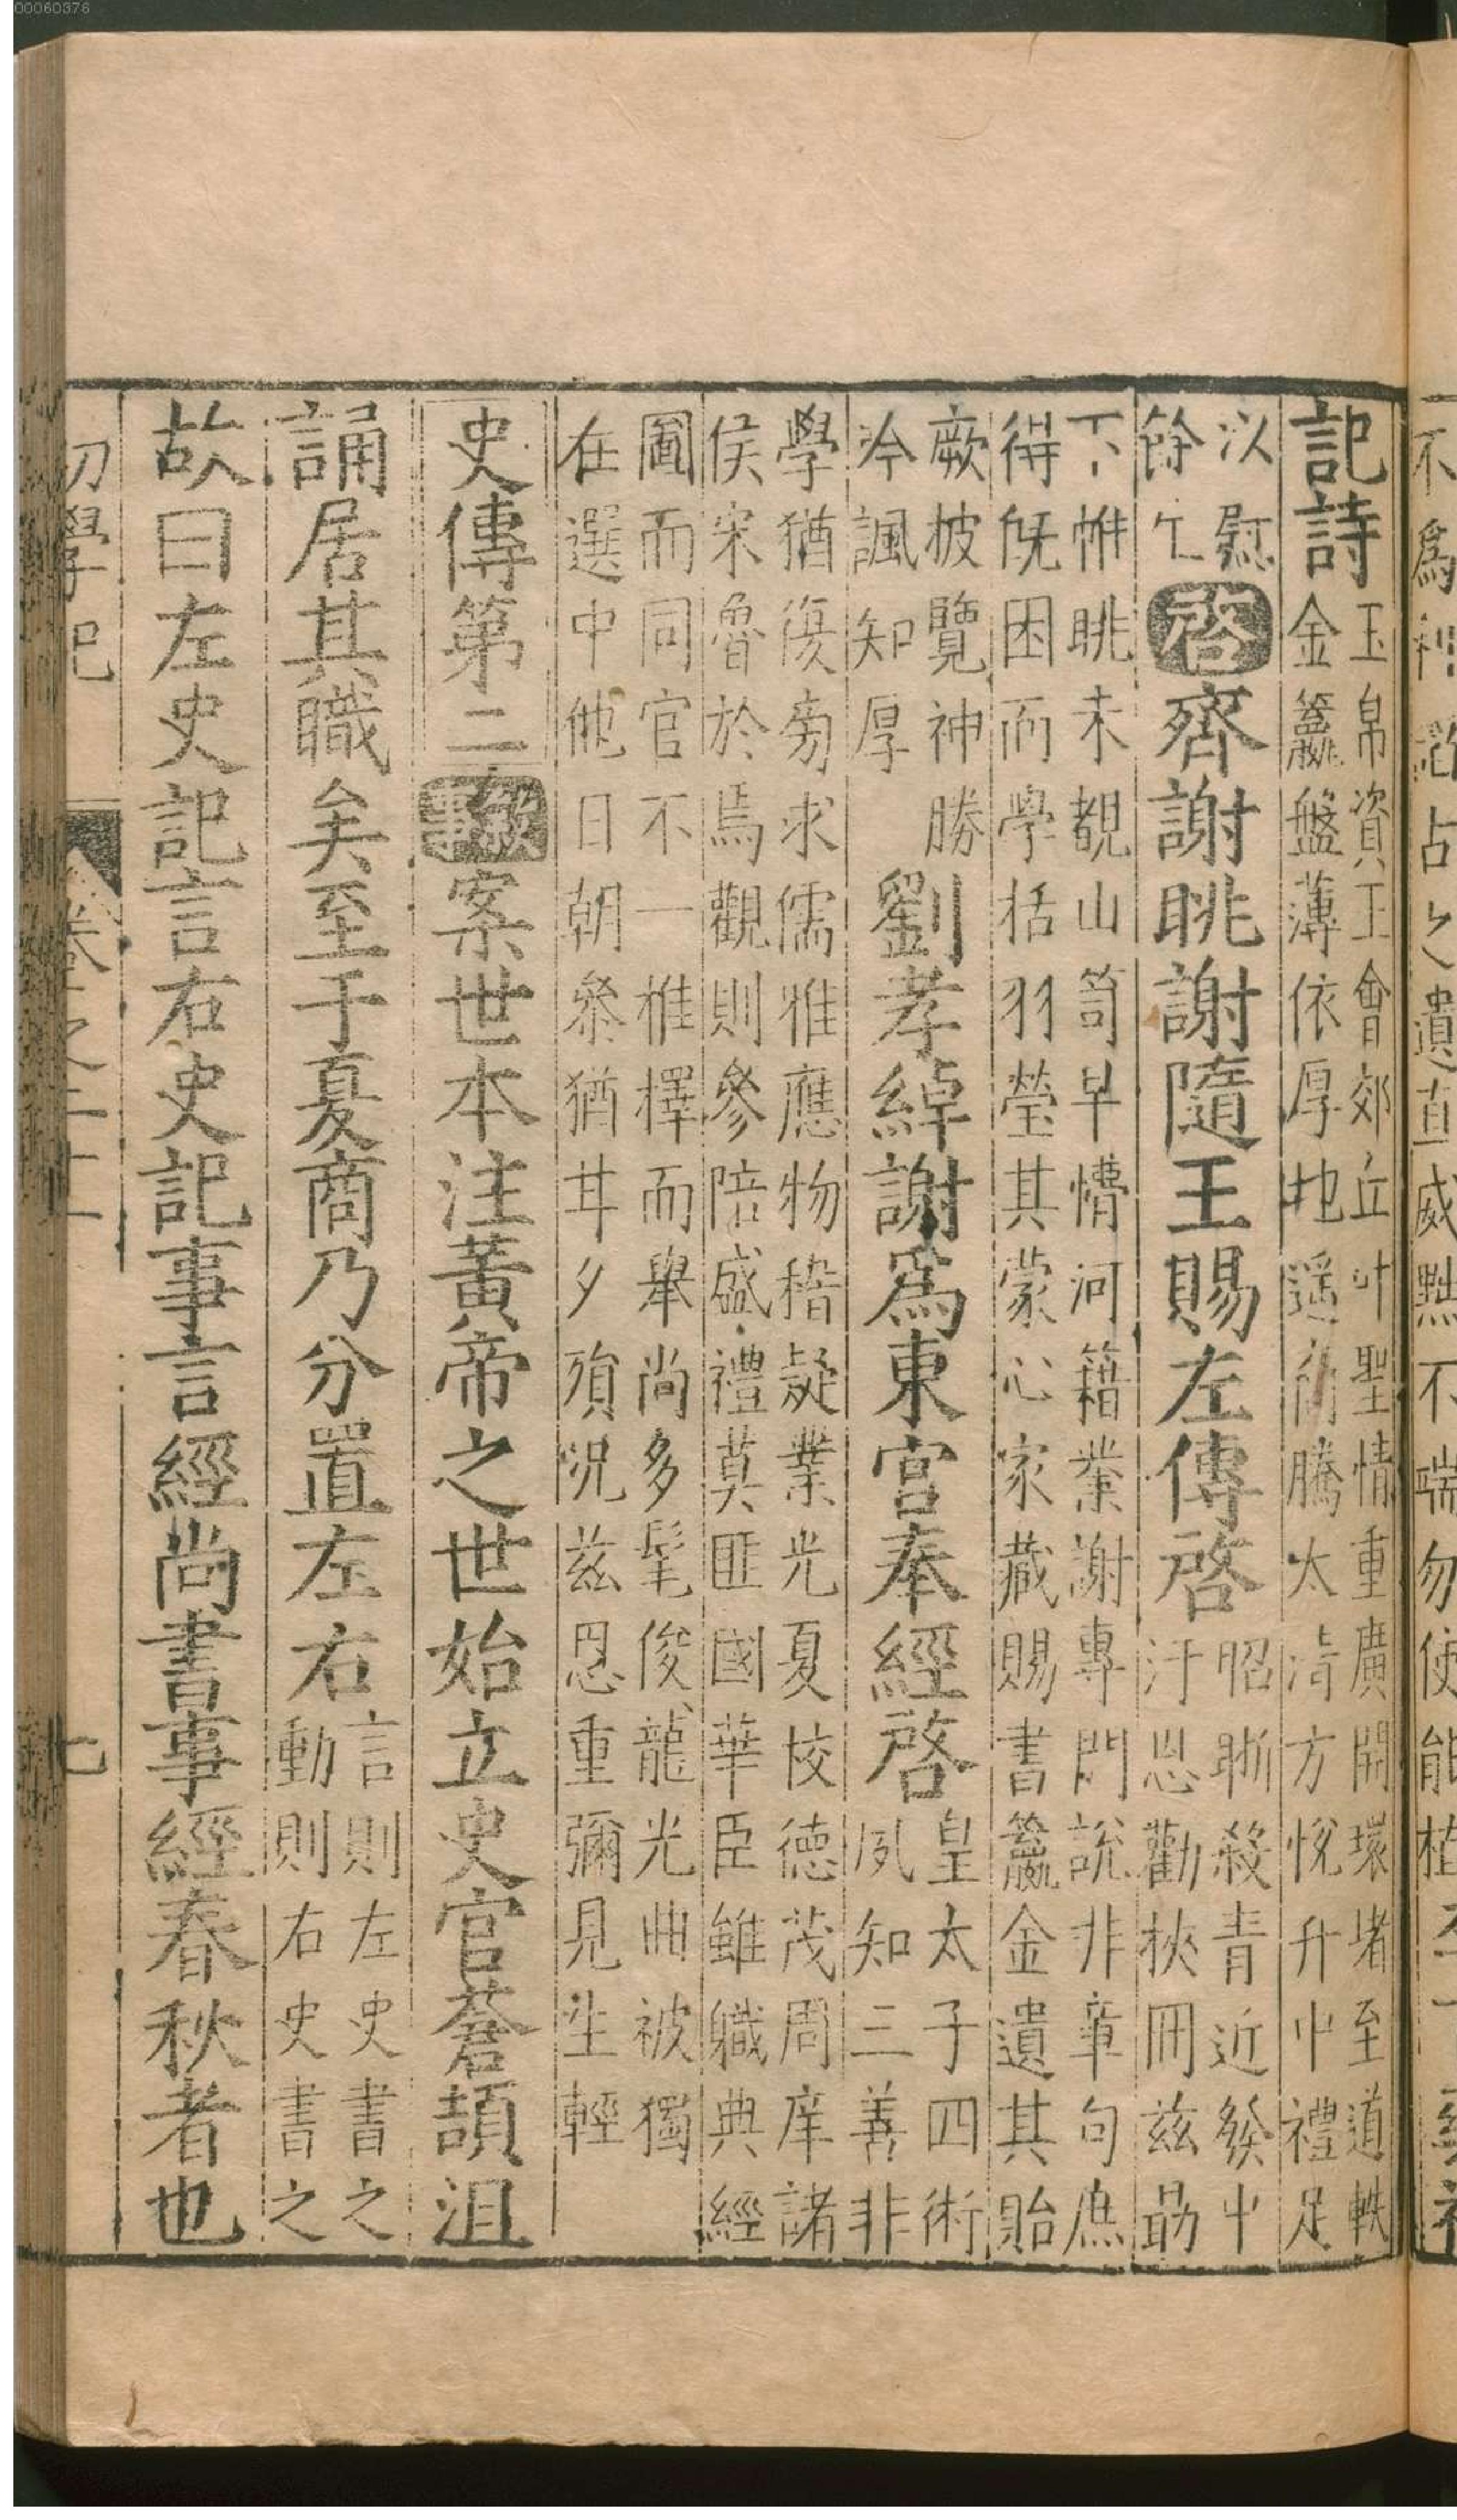 記詩
玉帛資王會郊丘叶聖情重廣開環堵至道軼
金籯盤薄依厚地遥裔騰太清方悅升中禮足
以慰
餘亡
啓
齊謝眺謝隨王賜左傳啓
昭晣殺青近發中
汗恩勸挾冊兹勗
下帷眺未覩山笥早懵河籍業謝專門說非章句庶
得旣困而學括羽瑩其蒙心家藏賜書籯金遺其貽
厥披覽神勝
今諷知厚
劉孝綽謝爲東宮奉經啓
皇太子四術
夙知三善非
學猶復旁求儒雅應物稽疑業光夏校德茂周庠諸
侯宋魯於焉觀則參陪盛禮莫匪國華臣雖職典經
圖而同官不一惟擇而舉尚多髦俊龍光曲被獨
在選中他日朝叅猶甘夕殞况兹恩重彌見生輕
史傳第二
敘事
案世本注黃帝之世始立史官蒼頡沮
誦居其職矣至于夏商乃分置左右
言則左史書之
動則右史書之
故曰左史記言右史記事言經尚書事經春秋者也
初學記
卷之二十一
七
00060376